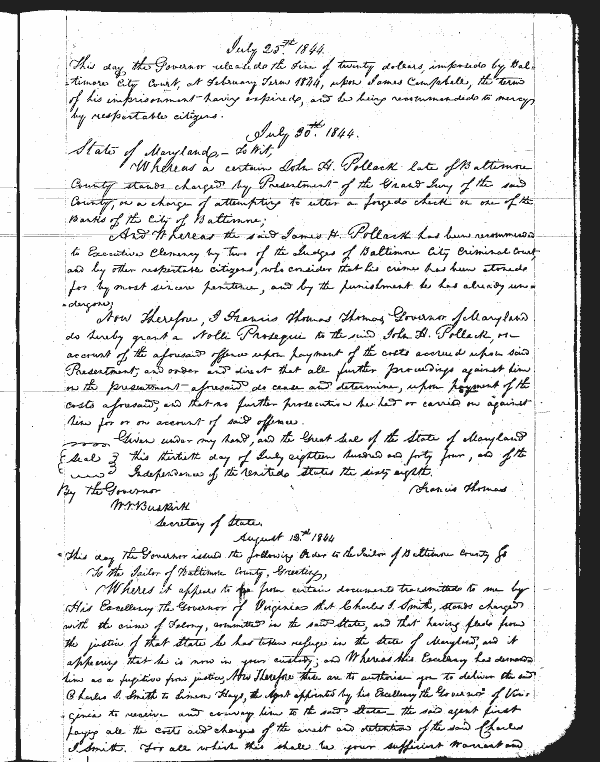 July 25th 1844.
This day the Governor released the Fine of twenty dollars, imposed by Bal-
timore City Court, at February Term 1844, upon James Campbell, the term
of his imprisonment having expired, and he being recommended to mercy
by respectable citizens.
July 30th 1844.
State of Maryland, To Wit,
Whereas a certain John H. Pollack late of Baltimore
County stands charged by Presentment of the Grand Jury of the said
County, on a charge of attempting to utter a forged check on one of the
Banks of the City of Baltimore;
And Whereas the said James H. Pollack has been recommended
to Executive Clemency by two of the Judges of Baltimore City Criminal Court
and by other respectable citizens, who consider that his crime has been atoned
for by most sincere penitence, and by the punishment he has already un-
dergone;
Now Therefore, I Francis Thomas Thomas Governor of Maryland
do hereby grant a Nolle Prosequi to the said John H. Pollack, on
account of the aforesaid offence upon payment of the costs accrued upon said
Presentment, and order and direct that all further proceedings against him
on the presentment aforesaid do cease and determine, upon payment of the
costs aforesaid, and that no further prosecution be had or carried on against
him for or on account of said offence.
Given under my hand, and the Great Seal of the State of Maryland
Seal this thirtieth day of July eighteen hundred and forty four, and of the
Independence of the United States the sixty eighth.
By the Governor Francis Thomas
Wm VBuskirk
Secretary of State.
August 12th 1844
This day the Governor issued the following Order to the Jailor of Baltimore County
To the Jailor of Baltimore County, Greeting,
Wheres it appears to from certain documents transmitted to me by
His Excellency the Governor of Virginia that Charles I. Smith, stands charged
with the crime of Felony, committed in the said State, and that having fled from
the justice of that State he has taken refuge in the State of Maryland, and it
appearing that he is now in your custody; and Whereas His Excellency has demanded
him as a fugitive from justice, Now Therefore these are to authorise you to deliver the said
Charles I. Smith to Simeon Hays, the Agent appointed by his Excellency the Governor of Vir-
ginia to receive and convey him to the said State the said agent first
paying all the costs and charges of the arrest and detention of the said Charles
I. Smith. For all which this shall be your sufficient Warrant and